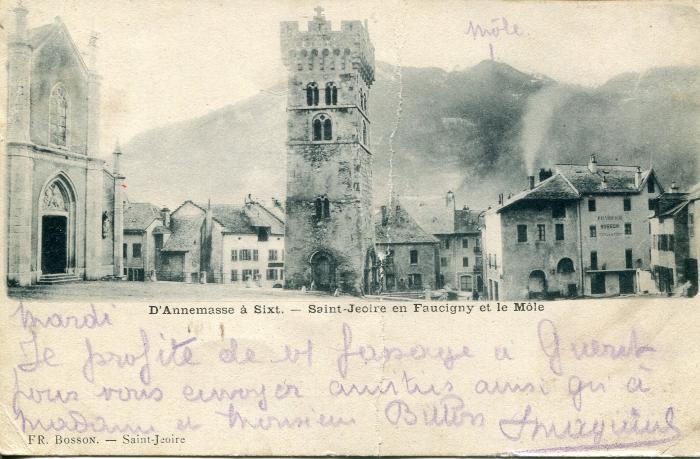 Môle.
PHARMACIE
BOSSON
D'Annemasse à Sixt. — Saint-Jeoire en Faucigny et le Môle
Mardi
Je profite de passage a
pour vous envoyer amitiés ainsi qu'à
Madame et Monsieur
FR. BOSSON. — Saint-Jeoire